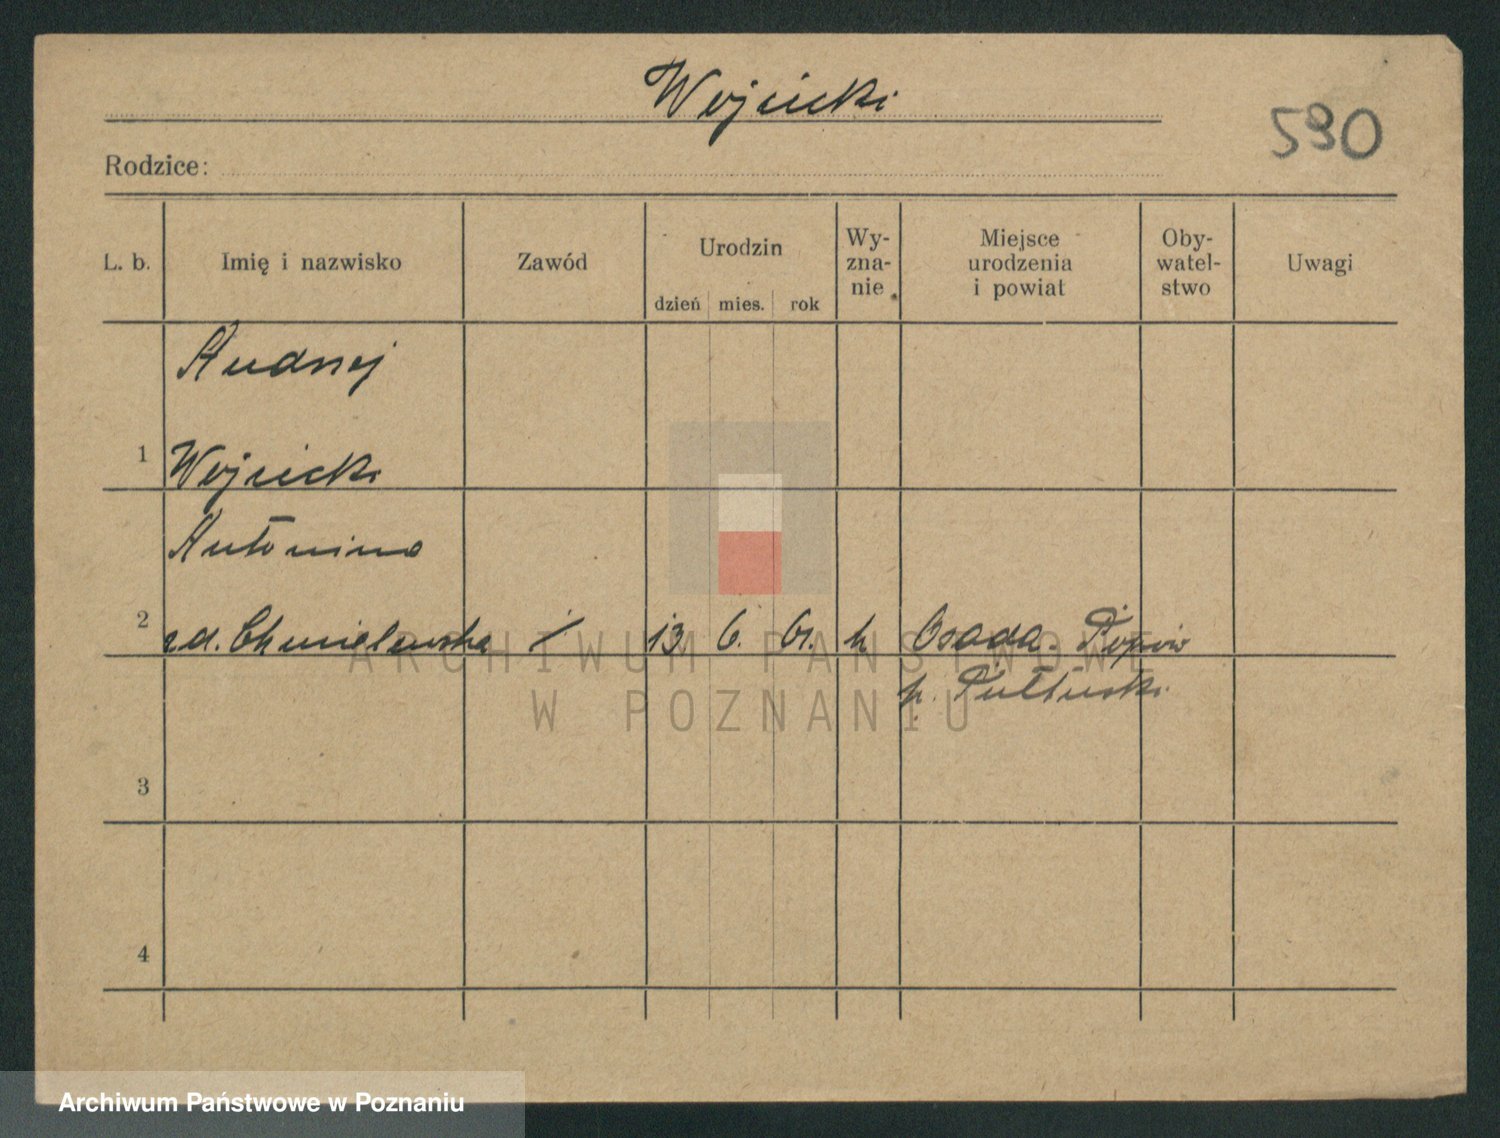 Wojcicki
590
Rodzice:
L. b.
Imię i nazwisko
Zawód
Urodzin
dzień mies. rok
Wy-
zna-
nie
Miejsce
urodzenia
i powiat
Oby-
watel-
stwo
Uwagi
Andrzej
1 Wojcicki
Antonina
2 zd. Chmielewska / 13 6. 61. k Osada Popów
p. Pułtuski
3
4
ARCHIWUM PAŃSTWOWE
W POZNANIU
Archiwum Państwowe w Poznaniu